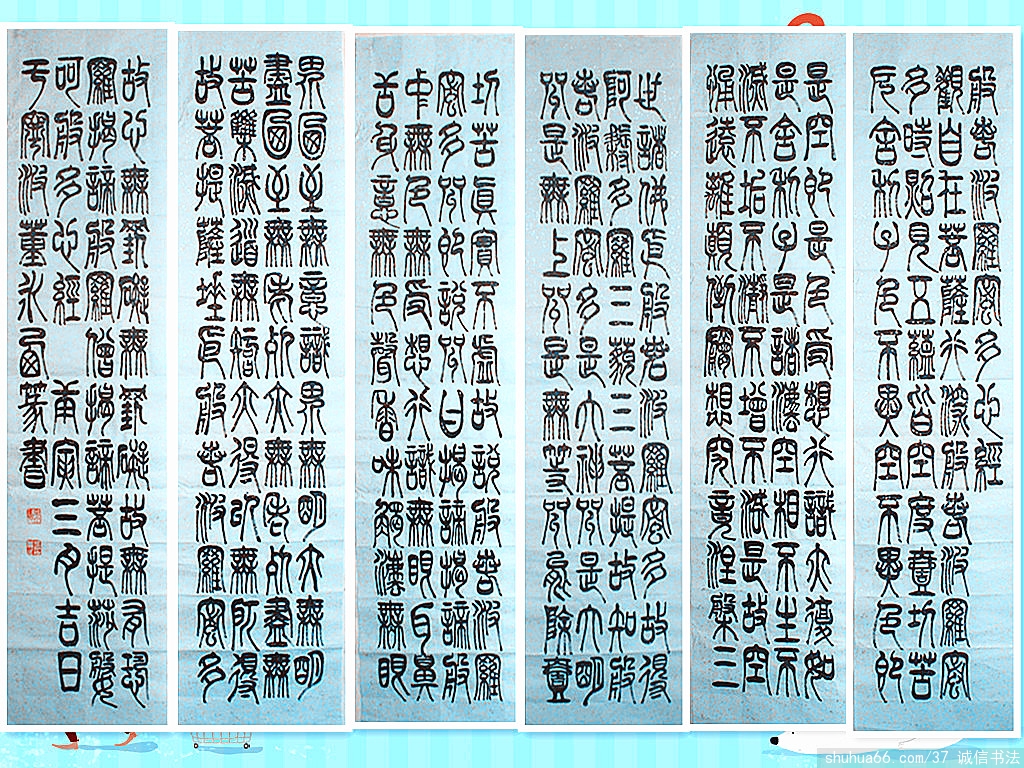 般若波羅蜜多心經
觀自在菩薩行深般若波羅蜜
多時照見五蘊皆空度壹切苦
厄舍利子色不異空不異色即
是空即是色受想行識亦復如
是舍利子是諸法空相不生不
滅不垢不淨不增不減是故空
怖遠離顛倒夢想究竟涅槃三
世諸佛依般若波羅蜜多故得
阿耨多羅三藐三菩提故知般
若波羅蜜多是大神咒是大明
咒是無上咒是無等咒能除壹
切苦真實不虛故說般若波羅
蜜多咒即說咒曰揭諦揭諦般
中無色無受想行識無眼耳鼻
舌身意無色聲香味觸法無眼
界乃至無意識界無明亦無明
盡乃至無老死亦無老死盡無
苦集滅道無智亦得以無所得
故菩提薩埵依般若波羅蜜多
故心無罣礙無罣礙故無有恐
羅揭諦般羅僧揭諦菩提薩婆
訶般多心經 甲寅三月吉日
于寧波董永西篆書
shuhua66.com/37 诚信书法